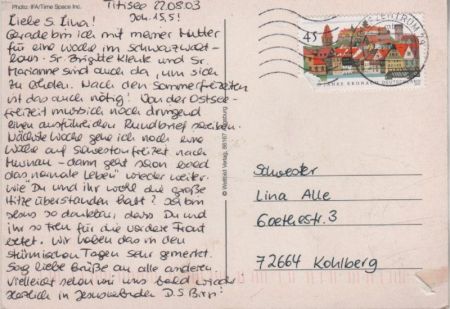 Photo: IFA/Time Space Inc.
Titisee 22.08.03
Joh. 15,5!
Liebe S. Lina!
Gerade bin ich mit meiner Mutter
für eine Woche im Schwarzwald-
haus. Sr. Brigitte Kleute und Sr.
Marianne sind auch da, um sich
zu erholen. Nach den Sommerfreizeiten
ist das auch nötig! Von der Ostsee-
freizeit muss ich noch dringend
einen ausführlichen Rundbrief schreiben.
Nächste Woche gehe ich noch eine
Woche auf Schwesternfreizeit nach
- dann geht schon bald
das "normale Leben" wieder weiter.
Wie Du und ihr wohl die große
Hitze überstanden habt? Ich bin
so dankbar, dass Du und
ihr so treu für die vordere Front
betet. Wir haben das in den
stürmischen Tagen sehr gemerkt.
Sag liebe Grüße an alle anderen
vielleicht sehen wir uns bald wieder
Herzlich in Jesus verbunden D. S. Birgit
© Weltbild Verlag, 86167 Augsburg
45
JAHRE KRONACH DEUTSCHLAND
BRIEFZENTRUM
Schwester
Lina Alle
Goethestr. 3
72664 Kohlberg